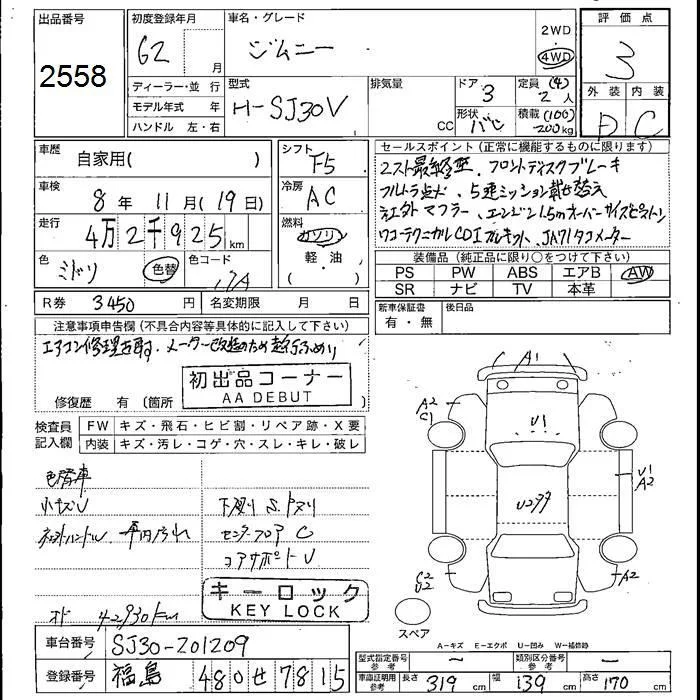 出品番号
2558
初度登録年月
62 年 月
車名・グレード
ジムニー
2WD
4WD
評価点
3
外装 内装
D C
ディーラー・並行
モデル年式 年
ハンドル 左・右
型式
H-SJ30V
排気量
CC
ドア
3
定員 (4)
2人
形状
バン
積載 (100)
200kg
車歴
自家用( )
車検
8年 11月(19日)
走行
4万2千925km
色
ミドリ
色替
色コード
R券 3450円
名変期限 月 日
シフト
F5
冷房
AC
燃料
ガソリン
軽・油
( )
セールスポイント(正常に機能するものに限ります)
2スト最終型、フロントディスクブレーキ
フルトラ点火、5速ミッション載せ替え
マフラー、エンジン1.5mmオーバーサイズピストン
ワコーテクニカルCDIフルキット、JA71タコメーター
装備品(純正品に限り○をつけて下さい)
PS PW ABS エアB AW
SR ナビ TV 本革
新車保証書
有・無
後日品
注意事項申告欄(不具合内容等具体的に記入して下さい)
エアコン修理必要、メーター改造のため
修復歴 有(箇所
初出品コーナー
AA DEBUT
検査員
記入欄
FW キズ・飛石・ヒビ割・リペア跡・X要
内装 キズ・汚レ・コゲ・穴・スレ・キレ・破レ
色替車
小キズU
下廻りS、
センターフロアC
コアサポートU
キーロック
KEY LOCK
オド 42930km
A1
A2
C1
U1
U1
A2
A2
スペア
A-キズ E-エクボ U-凹み W-補修跡
車台番号 SJ30-201209
登録番号 福島 480せ7815
型式指定番号
参考
ー
類別区分番号
参考
ー
車庫証明用
参考
長さ 319cm
幅 139cm
高さ 170cm